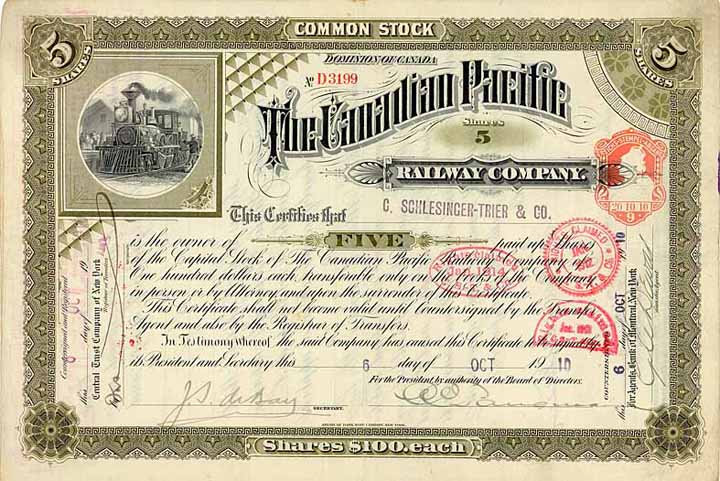 COMMON STOCK
5
SHARES
5
SHARES
DOMINION OF CANADA
No D3199
The Canadian Pacific
Shares
5
RAILWAY COMPANY.
C. SCHLESINGER-TRIER & CO.
This Certifies that
is the owner of FIVE paid up Shares
of the Capital Stock of The Canadian Pacific Railway Company of
One hundred dollars each, transferable only on the books of the Company
in person or by Attorney and upon the surrender of this Certificate.
This Certificate shall not become valid until Countersigned by the Transfer
Agent and also by the Registrar of Transfers.
In Testimony whereof the said Company has caused this Certificate to be signed by
its President and Secretary this 6 day of OCT 1910
For the President, by authority of the Board of Directors.
SECRETARY.
Shares $100. each
Countersigned and Registered
this 6 day of OCT 19
Central Trust Company of New York
Registrar of Transfers
COUNTERSIGNED
this 6 day of OCT 1910
For Agents, Bank of Montreal, New York
20.10.10
9
1914